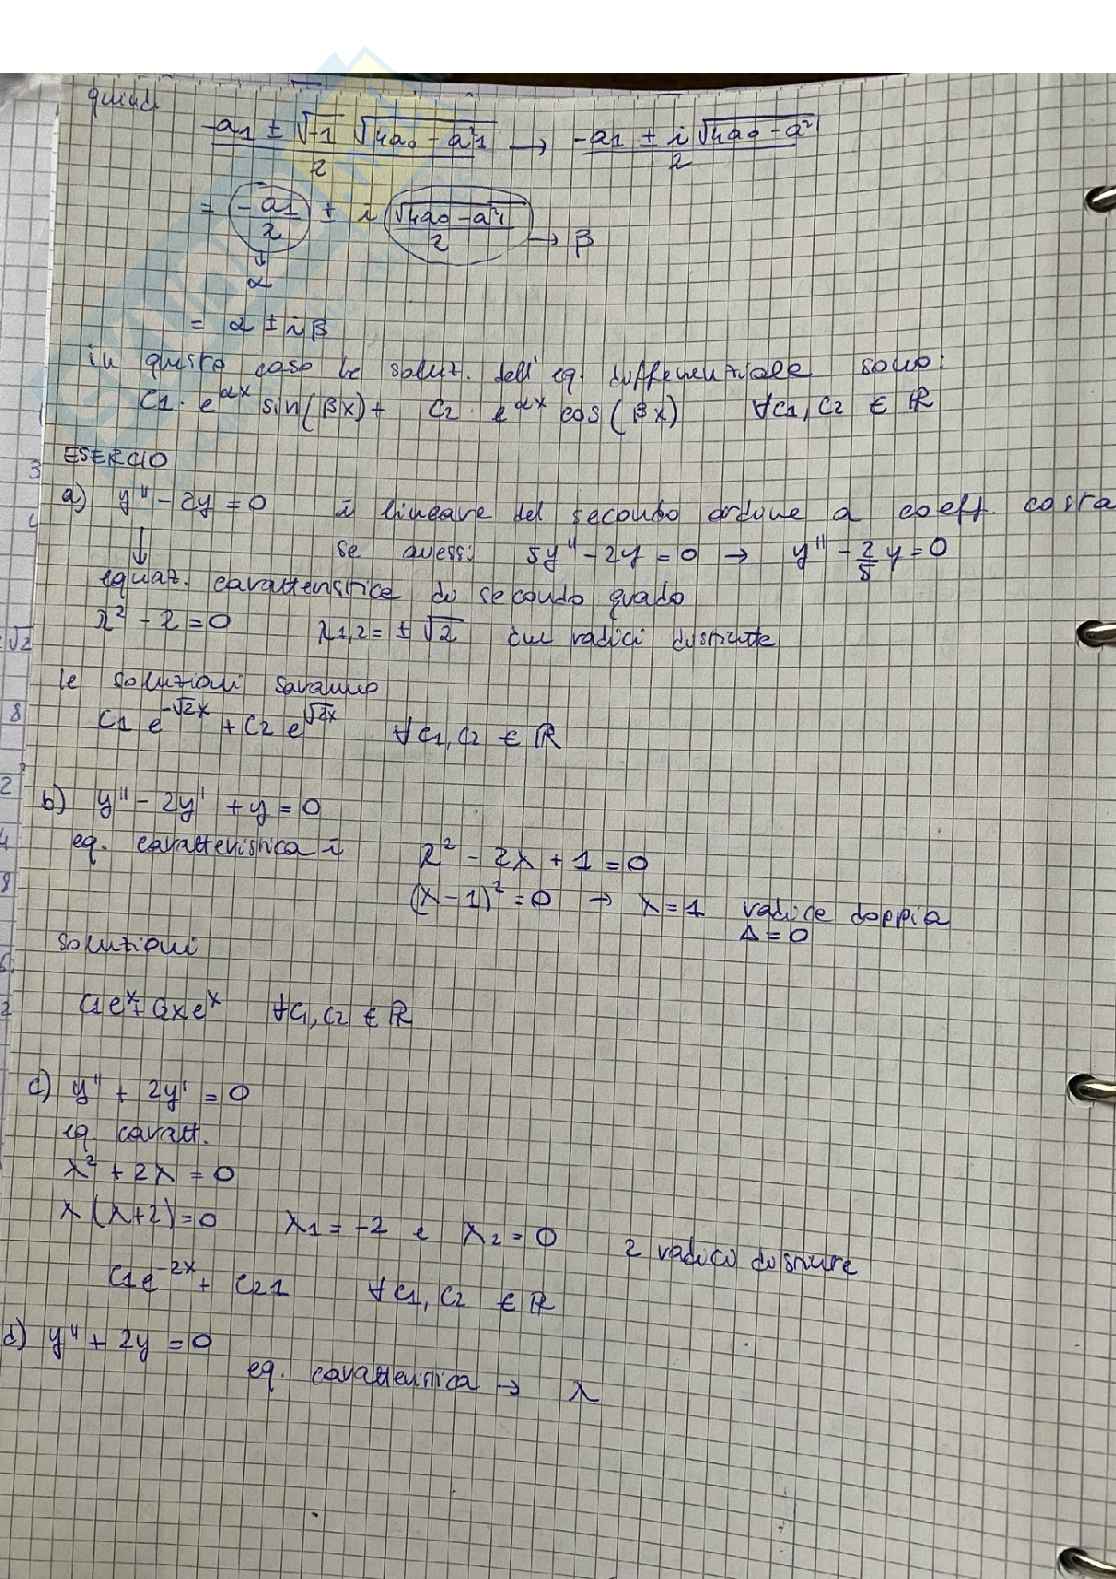 quindi
-a1 ± √-1 √4a0 - a²1 / 2 → -a1 ± i √4a0 - a² / 2
= -a1/2 ± i √4a0 - a²1 / 2 → β
↓
α
= α ± iβ
in questo caso le soluz. dell'eq. differenziale sono:
C1 · e^αx sin(βx) + C2 · e^αx cos(βx) ∀c1, c2 ∈ ℝ
ESERCIO
a) y'' - 2y = 0 è lineare del secondo ordine a coeff. costa
↓ se avessi 5y'' - 2y = 0 → y'' - 2/5 y = 0
equaz. caratteristica di secondo grado
λ² - 2 = 0 λ1,2 = ± √2 due radici distinte
le soluzioni saranno
C1 e^-√2x + C2 e^√2x ∀c1, c2 ∈ ℝ
b) y'' - 2y' + y = 0
eq. caratteristica è λ² - 2λ + 1 = 0
(λ - 1)² = 0 → λ = 1 radice doppia
Δ = 0
soluzioni
C1e^x + C2xe^x ∀c1, c2 ∈ ℝ
c) y'' + 2y' = 0
eq. caratt.
λ² + 2λ = 0
λ(λ+2) = 0 λ1 = -2 e λ2 = 0 2 radici distinte
C1e^-2x + C2 1 ∀c1, c2 ∈ ℝ
d) y'' + 2y = 0
eq. caratteristica → λ